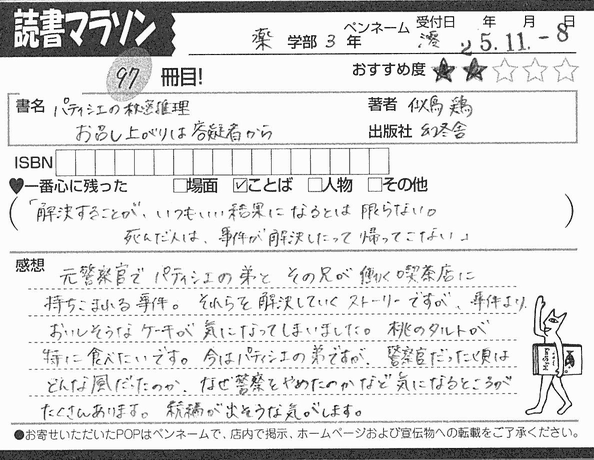 読書マラソン
薬 学部 3 年
ペンネーム 澪
受付日 年 月 日
25.11.-8
97 冊目!
おすすめ度 ★★☆☆☆
書名 パティシエの秘密推理
お召し上がりは容疑者から
著者 似鳥 鶏
出版社 幻冬舎
ISBN
♥一番心に残った □場面 ☑ことば □人物 □その他
「解決することが、いつもいい結果になるとは限らない。
死んだ人は、事件が解決したって帰ってこない」
感想
元警察官でパティシエの弟と その兄が働く喫茶店に
持ちこまれる事件。それらを解決していくストーリーですが、事件より、
おいしそうなケーキが気になってしまいました。桃のタルトが
特に食べたいです。今はパティシエの弟ですが、警察官だった頃は
どんな風だたのか、なぜ警察をやめたのかなど気になるところが
たくさんあります。続編が出そうな気がします。
●お寄せいただいたPOPはペンネームで、店内で掲示、ホームページおよび宣伝物への転載をご了承ください。